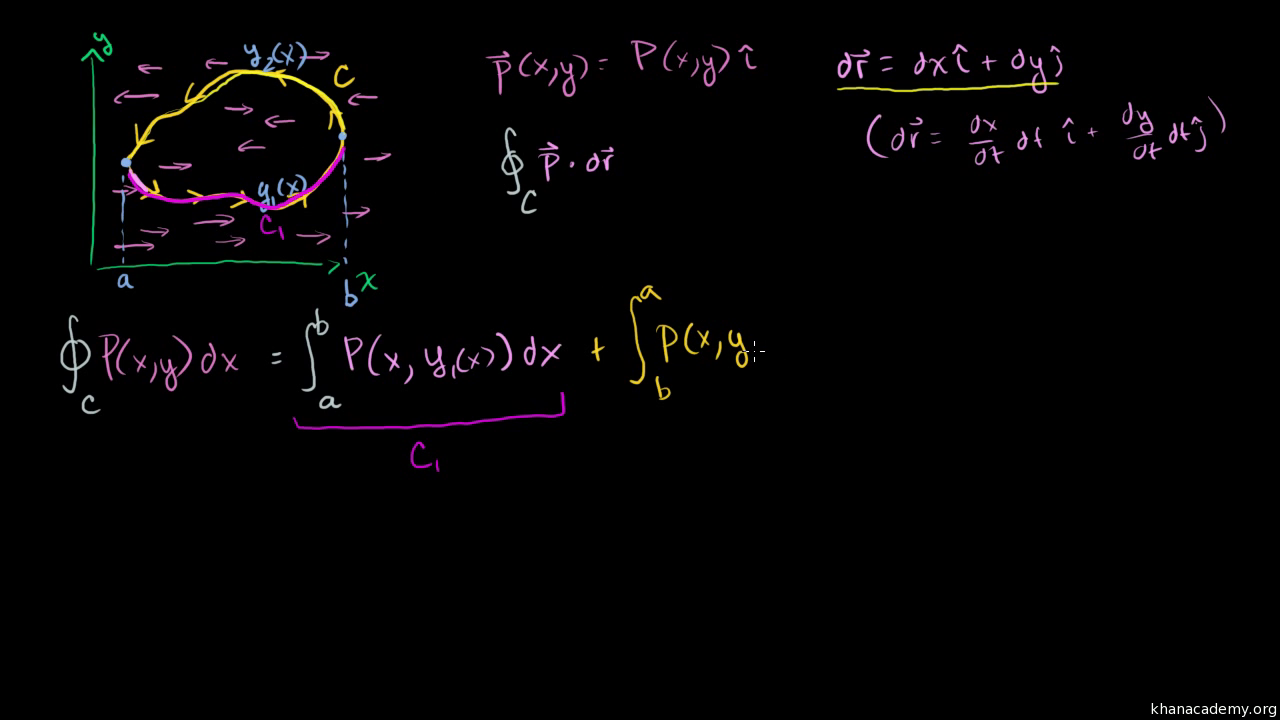 y
y₂(x)
C
y₁(x)
C₁
a
b
x
P⃗(x,y) = P(x,y) î
dr⃗ = dx î + dy ĵ
(dr⃗ = dx/dt dt î + dy/dt dt ĵ)
∮_C P⃗ · dr⃗
∮_C P(x,y) dx = ∫_a^b P(x, y₁(x)) dx + ∫_b^a P(x, y
C₁
khanacademy.org